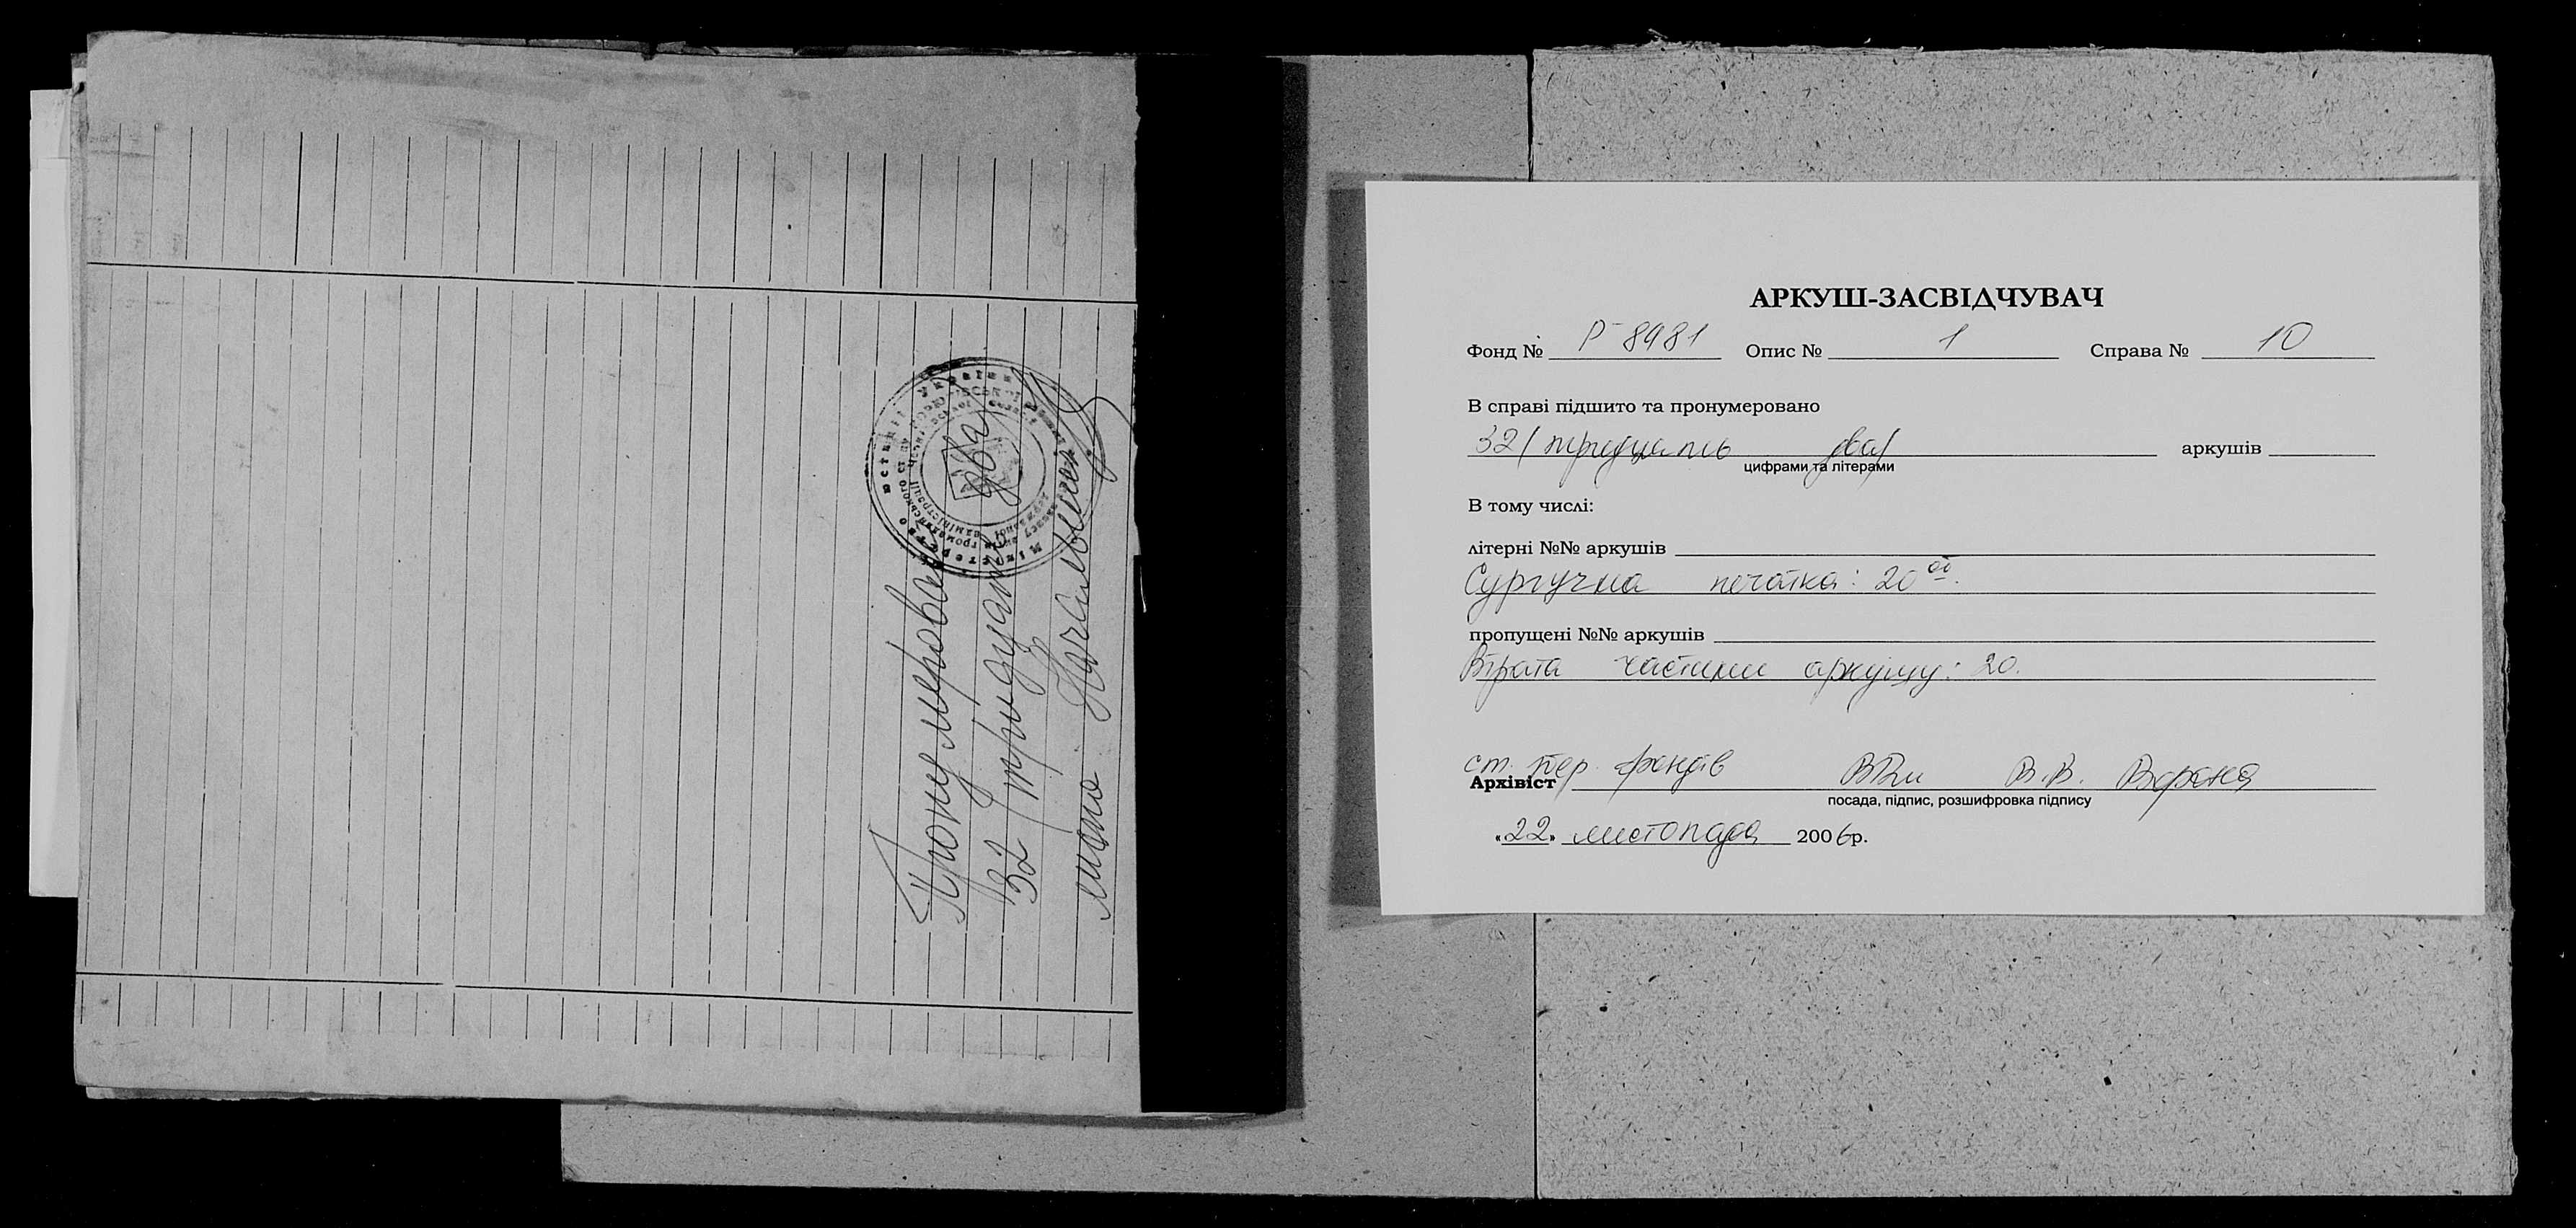 Пронумеровано
32 /тридцать два/
листа. Начальник
Міністерство юстиції України
АРКУШ-ЗАСВІДЧУВАЧ
Фонд № Р-8981 Опис № 1 Справа № 10
В справі підшито та пронумеровано
32/ тридцать два/ аркушів
цифрами та літерами
В тому числі:
літерні №№ аркушів
Сургучна печатка: 20 об.
пропущені №№ аркушів
Втрата частини аркушу: 20.
ст. хр. фондів В.В. Ворона
Архівіст
посада, підпис, розшифровка підпису
«22» листопада 2006р.